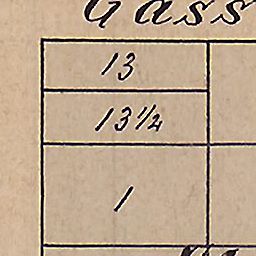 Gass
13
13¼
1